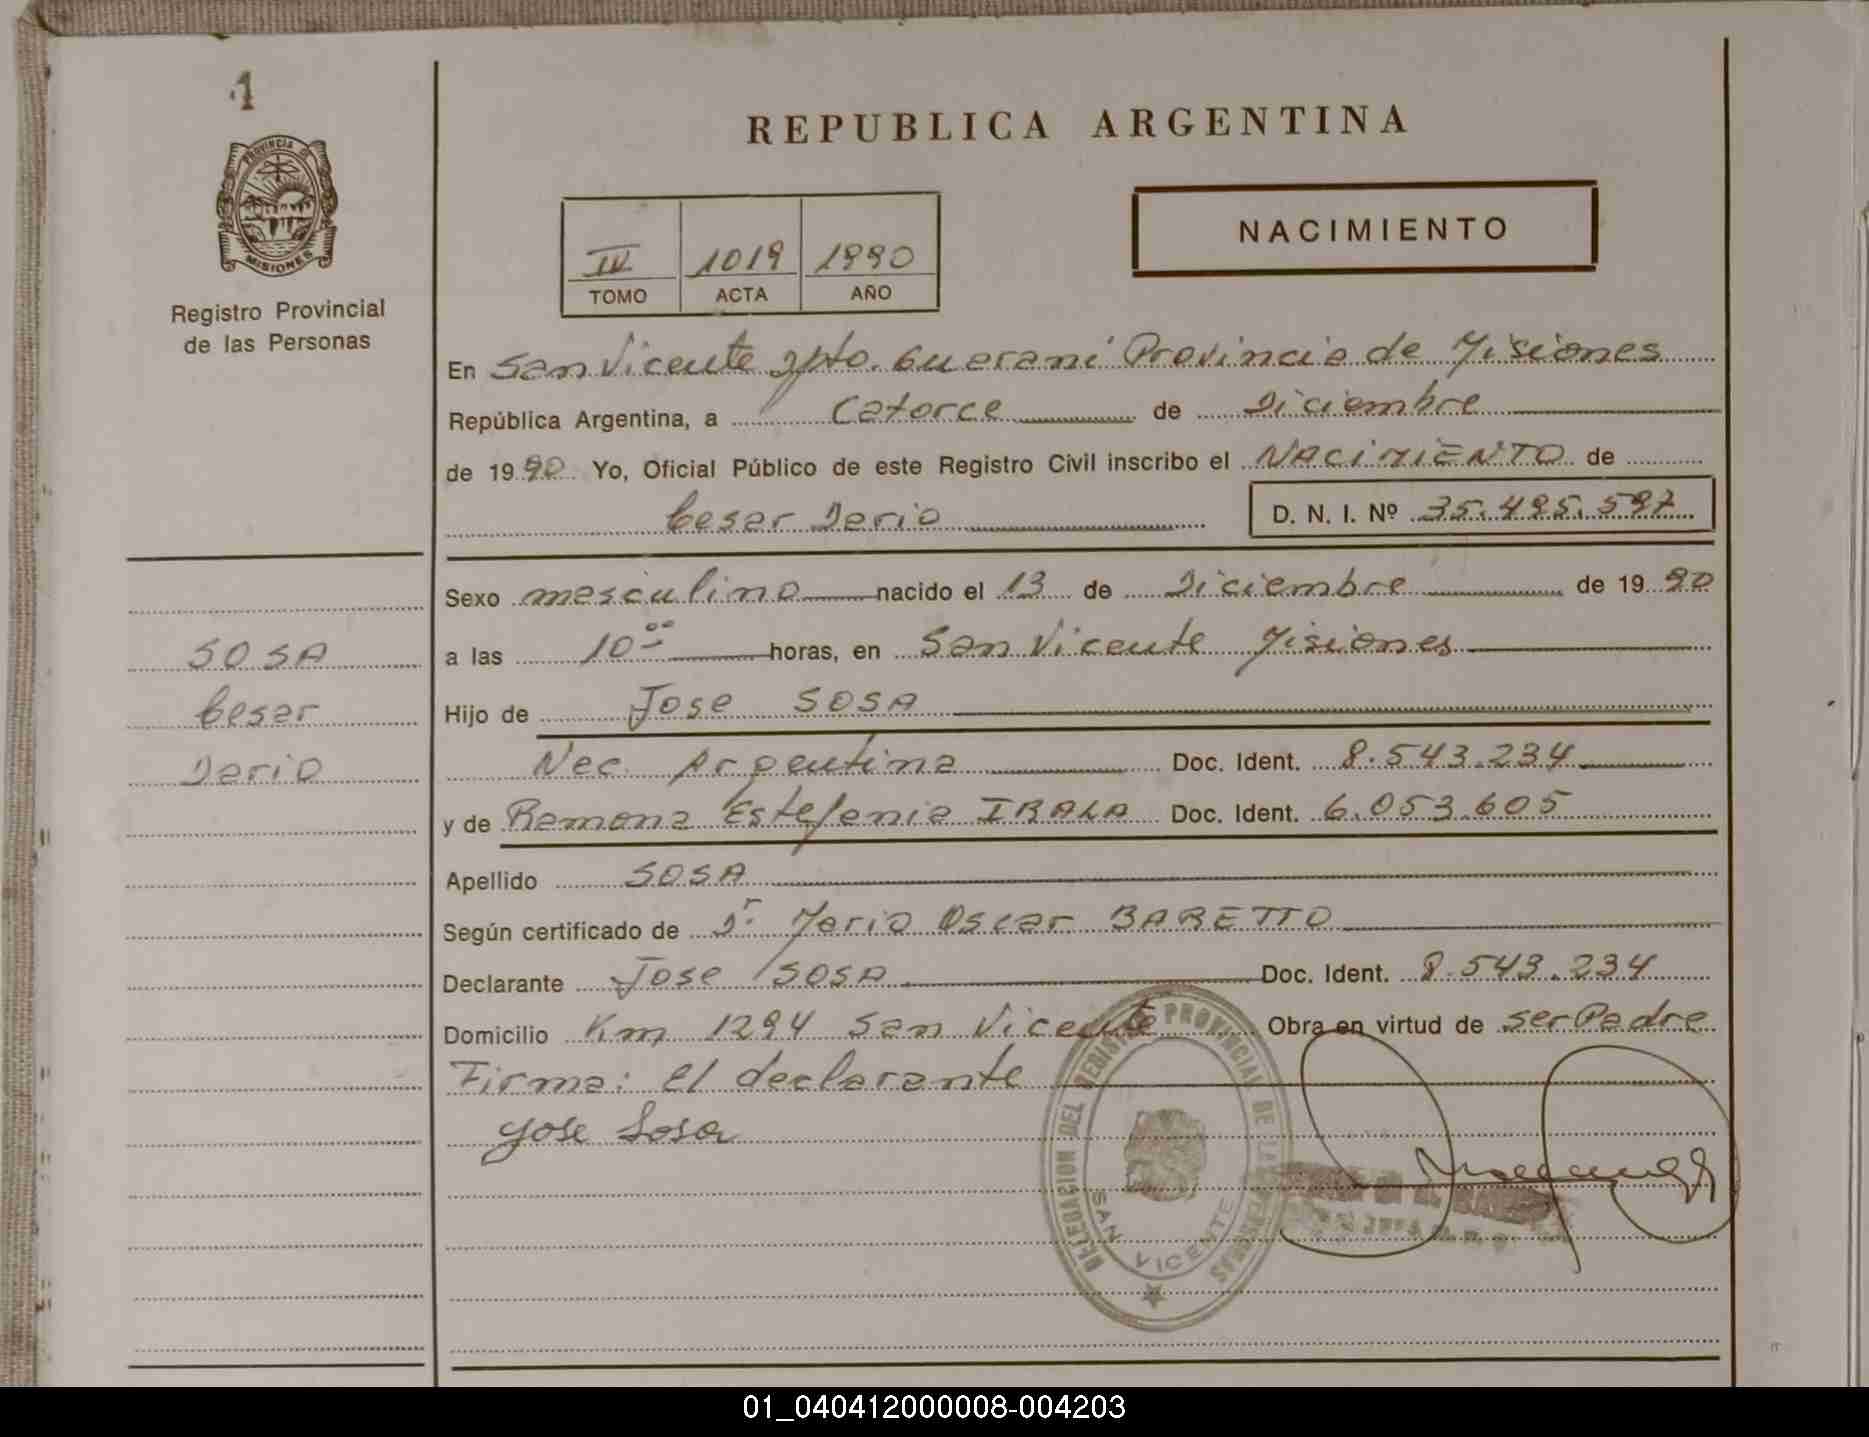 1
PROVINCIA DE
MISIONES
Registro Provincial
de las Personas
REPUBLICA ARGENTINA
NACIMIENTO
IV 1019 1990
TOMO ACTA AÑO
En San Vicente Dpto. Guarani Provincia de Misiones
República Argentina, a Catorce de Diciembre
de 1990 Yo, Oficial Público de este Registro Civil inscribo el NACIMIENTO de
Cesar Dario D. N. I. Nº 35.495.597
Sexo masculino nacido el 13 de Diciembre de 1990
SOSA
a las 10⁰⁰ horas, en San Vicente Misiones
Cesar
Hijo de Jose SOSA
Dario
Nac. Argentina Doc. Ident. 8.543.234
y de Ramona Estefania IRALA Doc. Ident. 6.053.605
Apellido SOSA
Según certificado de Dr. Mario Oscar BARETTO
Declarante Jose SOSA Doc. Ident. 8.543.234
Domicilio Km 1294 San Vicente Obra en virtud de ser Padre
Firma: el declarante
Jose Sosa
DELEGACION DEL REGISTRO PROVINCIAL DE LAS PERSONAS
SAN VICENTE
01_040412000008-004203